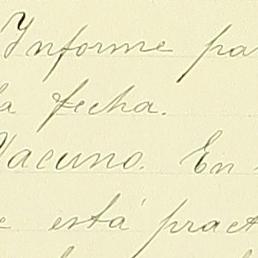 Informe pa
la fecha.
Vacuno. En
e está pract